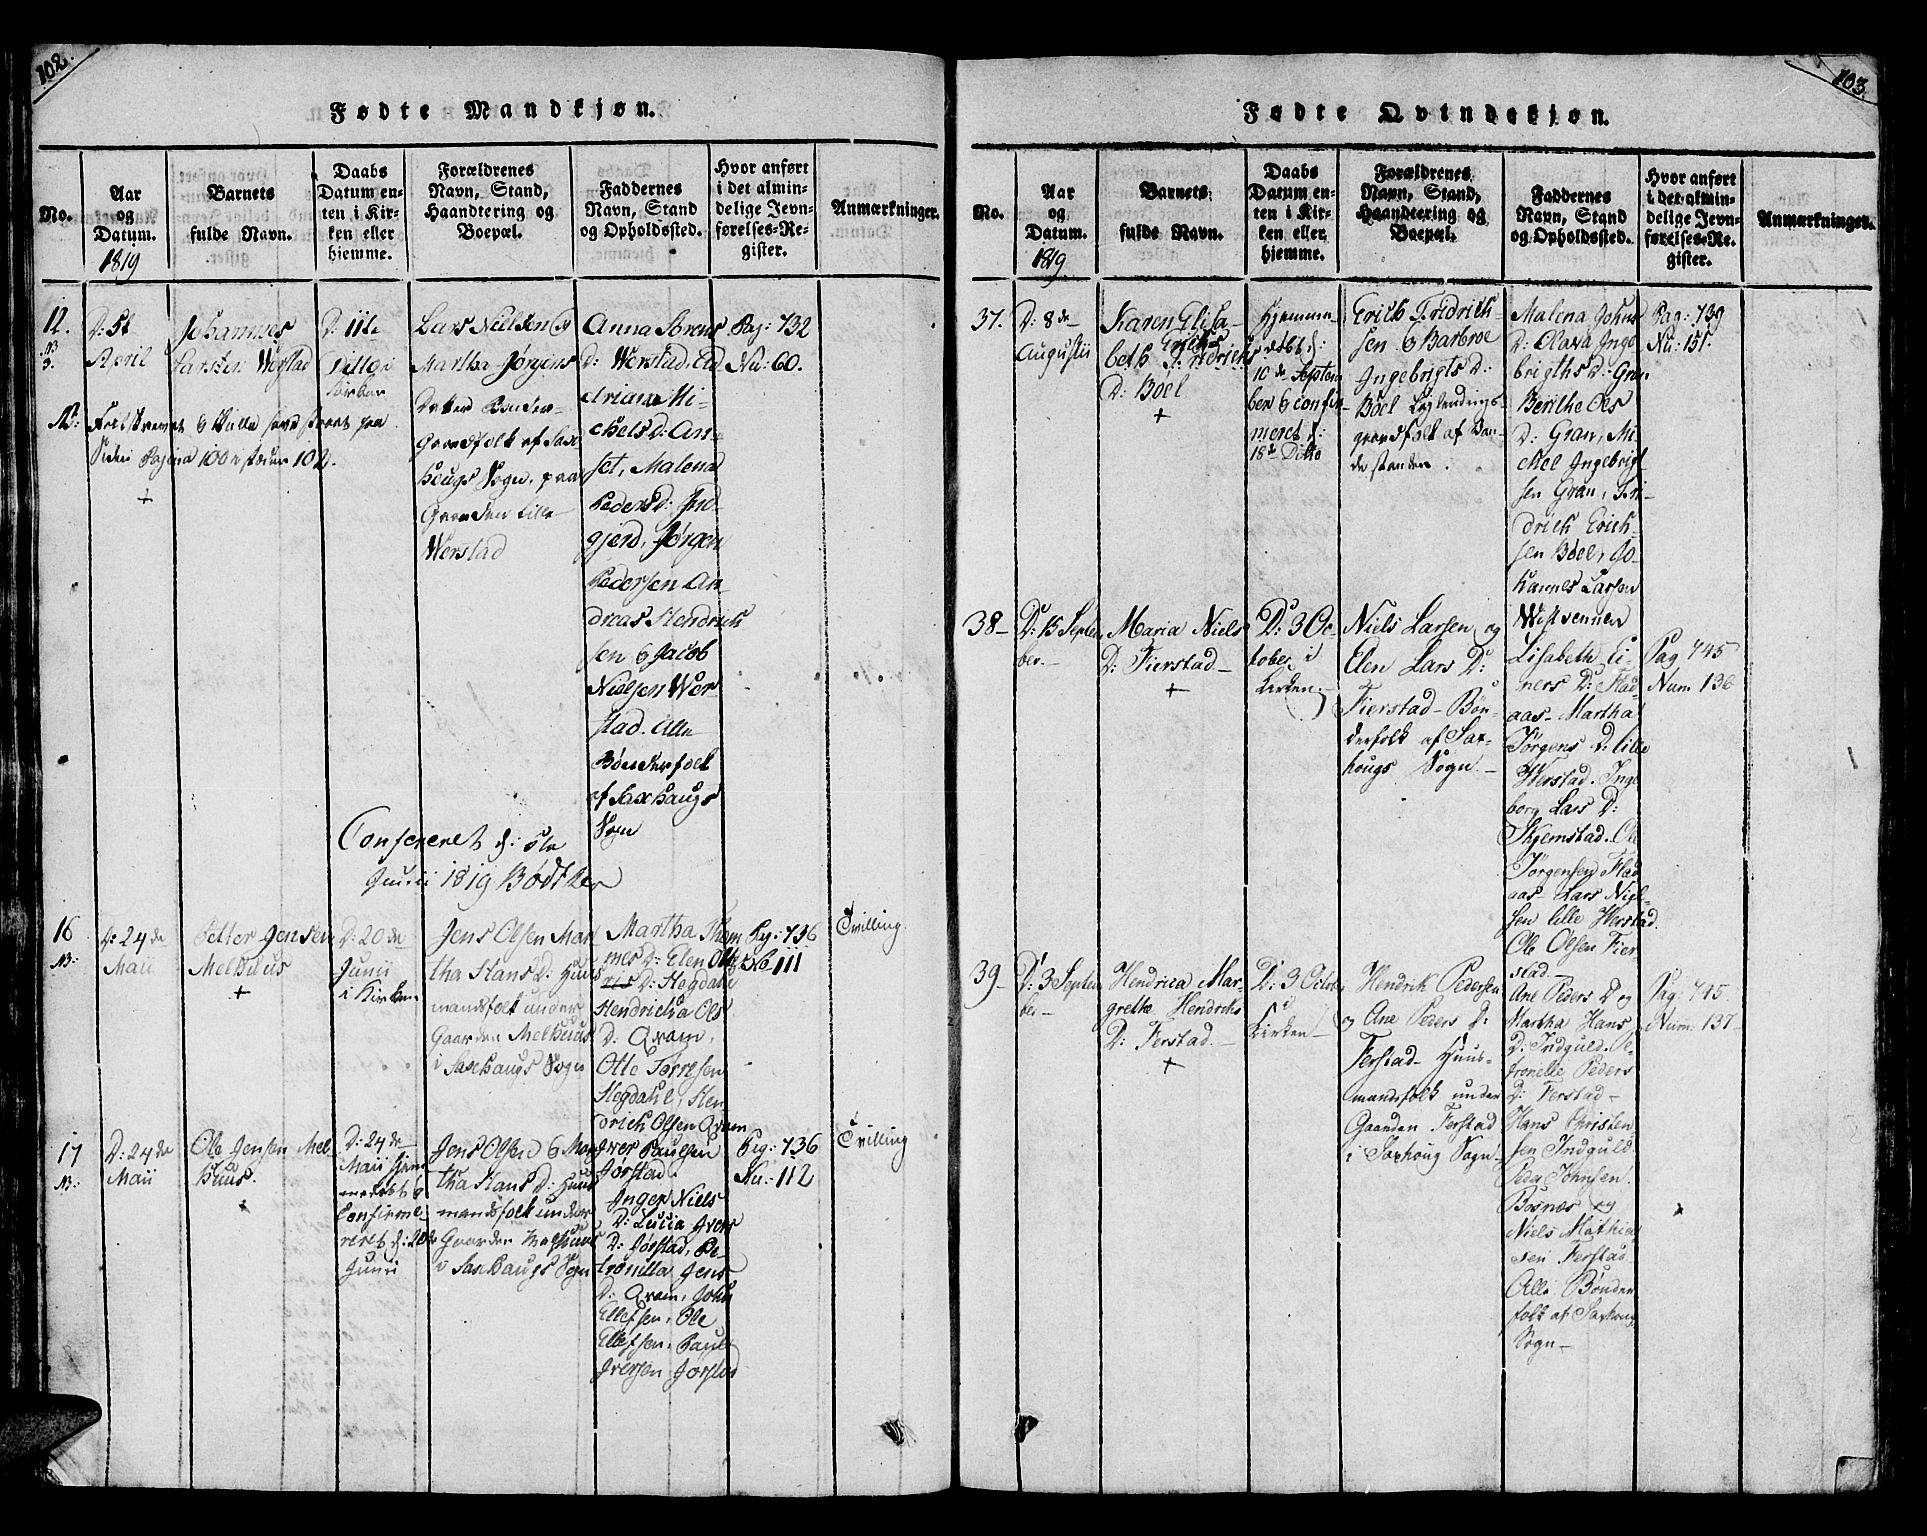 102.
Fødte Mandkjøn.
No.
Aar
og
Datum.
1819
Barnets
fulde Navn.
Daabs
Datum en-
ten i Kir-
ken eller
hjemme.
Forældrenes
Navn, Stand,
Haandtering og
Boepæl.
Faddernes
Navn, Stand
og Opholdssted.
Hvor anført
i det almin-
delige Jevn-
førelses-Re-
gister.
Anmærkninger.
12.
NB
3.
D: 5t
April
Johannes
Larsen Werstad
D: 11te
Lars Nielsen og
Martha Jørgens
Datter Bønder-
Gaardfolk af Sax
haugs Sogn, paa
Gaarden lille
Werstad
Anna Sørens
D: Werstad, Ad
driana Mi-
chels D: An-
set, Malena
Peders D: Ind-
gjerd, Jørgen
Pedersen An-
dreas Hendrich
sen & Jacob
Nielsen Wer
stad. Alle
Bønderfolk
af Saxhaugs
Sogn
Pag: 732
Nu: 60.
NB:
Siden Pagina 100 102.
+
Confereret d: 5te
Junii 1819 Bødtker
16
NB:
D: 24de
Maii
Petter Jensen
Melhuus
+
D: 20de
Junii
i Kirken
Jens Olsen Mar
tha Hans D: Huus
mandsfolk under
Gaarden Melhuus
i Saxhaugs Sogn
Martha Thom
mes D: Elen Ole
D: Hegdahl
Hendricha Ols
D: Qvam,
Otte Torresen
Hegdahl, Hen
drich Olsen Qvam
Pag: 736
No 111
Tvilling.
17
NB:
D: 24de
Maii
Ole Jensen Mel
huus.
+
D: 24de
Maii hjem
medøbt &
confirme-
reret d: 20de
Junii
Jens Olsen & Mar
tha Hans D: Huus
mandsfolk under
Gaarden Melhuus
i Saxhaugs Sogn
Iver Paulsen
Jørstad,
Inger Niels
D: Lucia Ivers
D: Jørstad, Pe-
tronilla Jens
D: Qvam, John
Ellefsen, Ole
Ellefsen, Paul
Iversen Jørstad
Pag: 736
Nu: 112
Tvilling
103.
Fødte Qvindekjøn.
No.
Aar
og
Datum.
1819
Barnets
fulde Navn.
Daabs
Datum en-
ten i Kir-
ken eller
hjemme.
Forældrenes
Navn, Stand,
Haandtering og
Boepæl.
Faddernes
Navn, Stand
og Opholdssted.
Hvor anført
i det almin-
delige Jevn-
førelses-Re-
gister.
Anmærkninger.
37.
D: 8de
Augustii
Karen Elisa-
beth Fridrichs
D: Boel
+
Hjemme
døbt d:
10de Septem
ber & confir-
meret d:
18de Ditto
Erich Fridrich-
sen & Barbroe
Ingebrigts D:
Böel
gaardfolk af Bon-
destanden.
Malena Johns
D: Olava Inge
brigths D: Gran
Berithe Oles
D: Gran, Mi-
chel Ingebrigt
sen Gran, Fri-
drich Erich-
sen Böel, Jo-
hannes Larsen
Westvennen
Pag: 739
Nu: 151.
38-
D: 15 Septem
ber.-
Maria Niels
D: Fierstad-
+
D: 3 Oc-
tober i
Kirken.-
Niels Larsen og
Elen Lars D:
Fierstad- Bøn-
derfolk af Sax-
hougs Sogn.-
Lisabeth Ei-
ners D: Flad-
aas- Martha
Jørgens D: lille
Werstad. Inge
borg Lars D:
Skjemstad. Ole
Jørgensen Flad
aas- Lars Niel-
sen lille Werstad.
Ole Olsen Fier
stad-
Pag 745
Num. 136
39-
D: 3 Septem
ber-
Hendrica Mar-
grethe Hendrichs
D: Ferstad.-
+
D: 3 Octob.
i
Kirken-
Hendrik Pedersen
og Ane Peders D:
Ferstad- Huus-
mandsfolk under
Gaarden Ferstad
i Saxhoug Sogn.-
Ane Peders D og
Martha Hans
D: Indguld. Pe-
tronelle Peders
D: Fierstad-
Hans Christen
sen Indguld
Peder Johnsen.
Bosnæs og
Niels Mathia
sen Ferstad
Alle Bønder
folk af Saxhoug
Sogn-
Pag: 745
Num: 137-